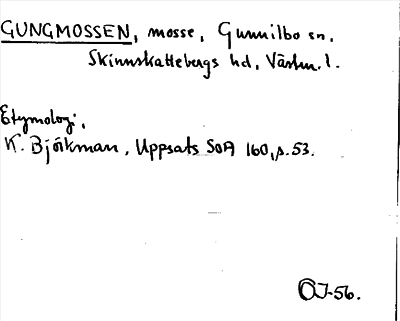 GUNGMOSSEN, mosse, Gunnilbo sn,
Skinnskattebergs hd, Västm. l.
Etymologi,
K. Björkman, Uppsats SOA 160, s. 53.
OJ-56.